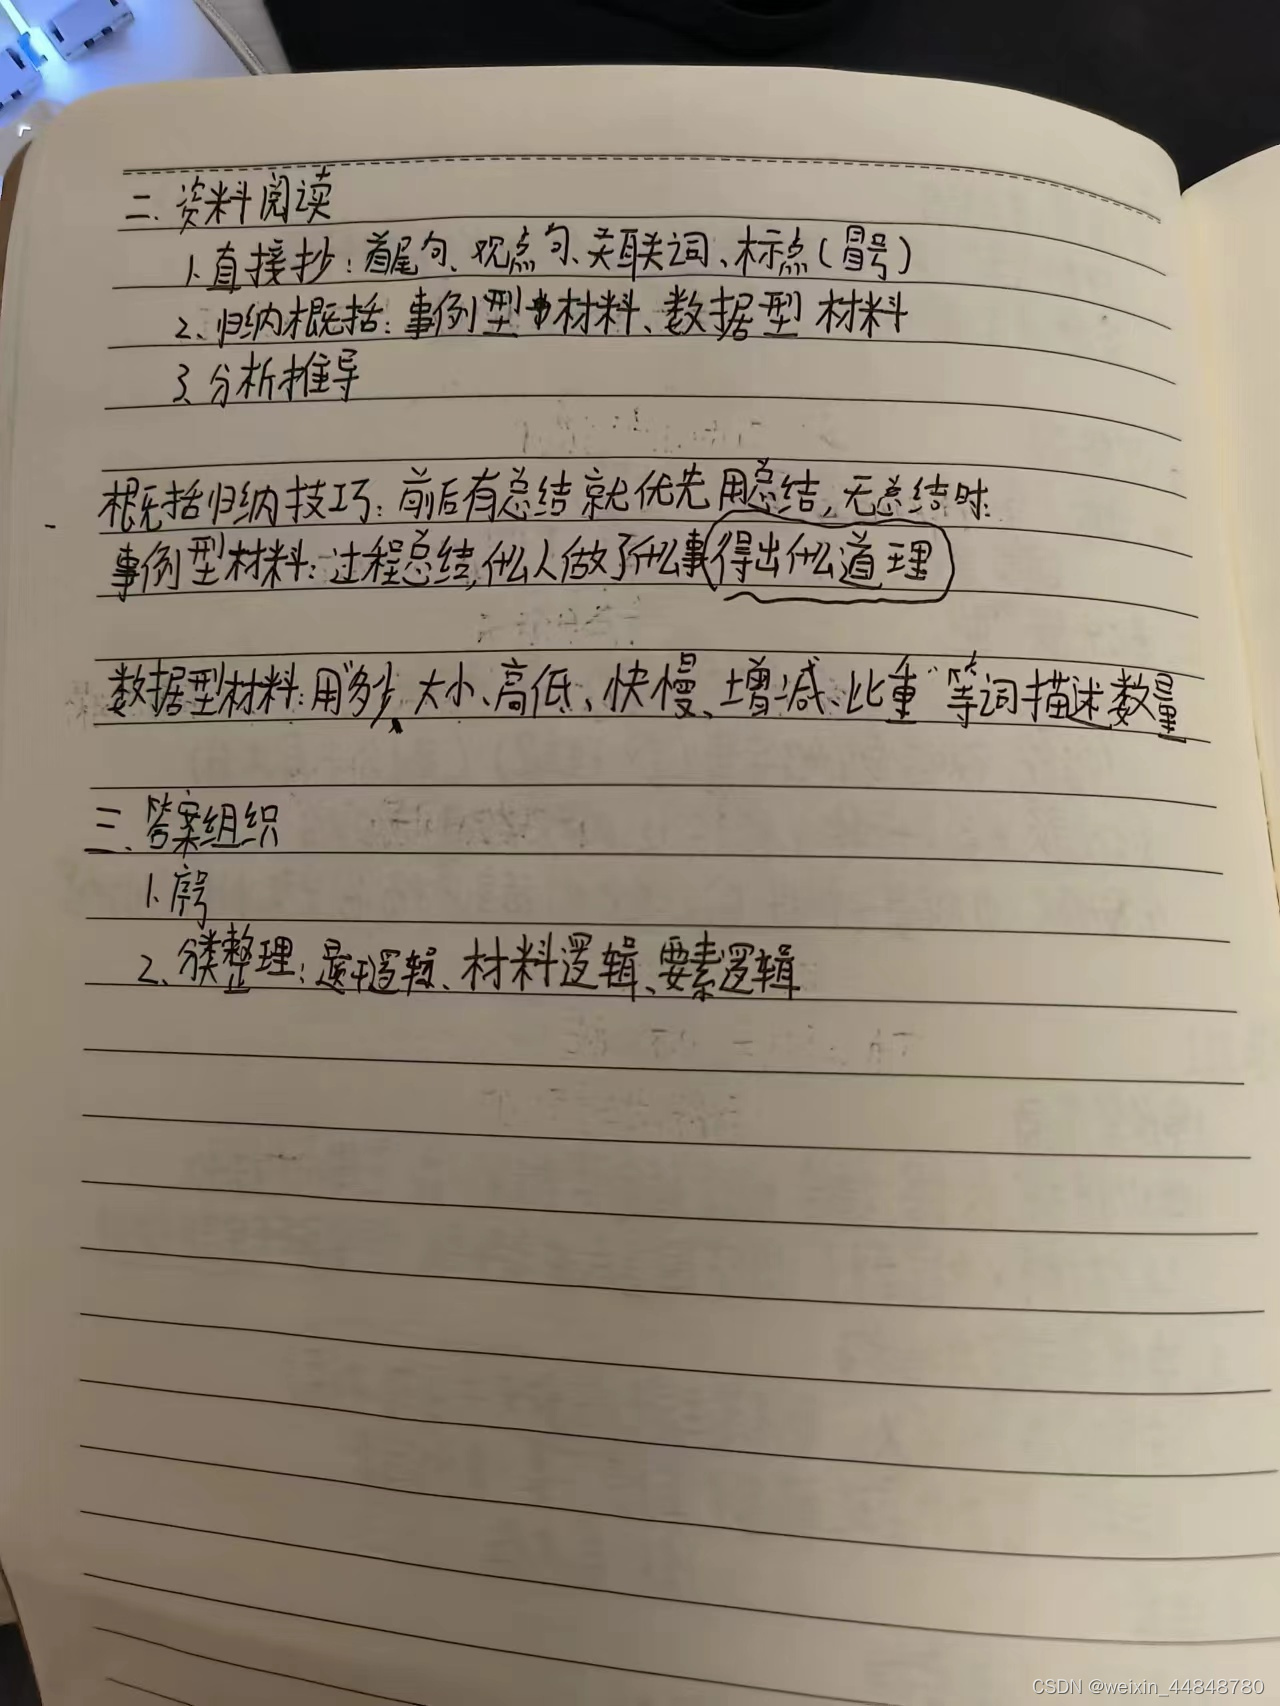 二、资料阅读
1、直接抄：首尾句、观点句、关联词、标点（冒号）
2、归纳概括：事例型材料、数据型材料
3、分析推导
概括归纳技巧：前后有总结就优先用总结，无总结时：
事例型材料：过程总结，什么人做了什么事得出什么道理
数据型材料：用“多少、大小、高低、快慢、增减、比重”等词描述数量
三、答案组织
1、序号
2、分类整理：题干逻辑、材料逻辑、要素逻辑
CSDN @weixin_44848780